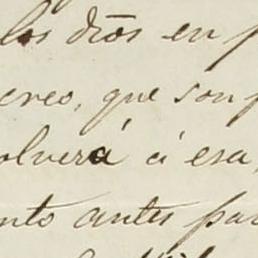 los dĩos en p
creo, que son p
olverá á esa,
nto antes par